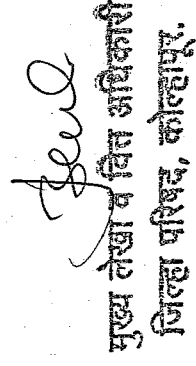 मुख्य लेखा व वित्त अधिकारी
जिल्हा परिषद, कोल्हापूर.